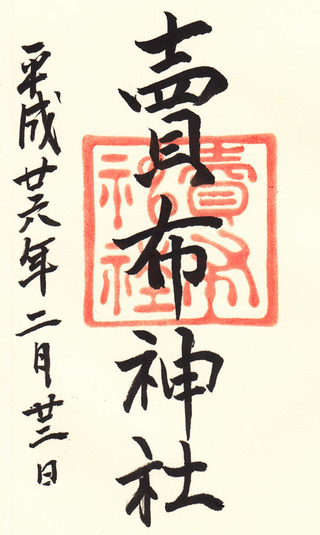 賣布神社
平成廿六年二月廿三日
賣布
神社